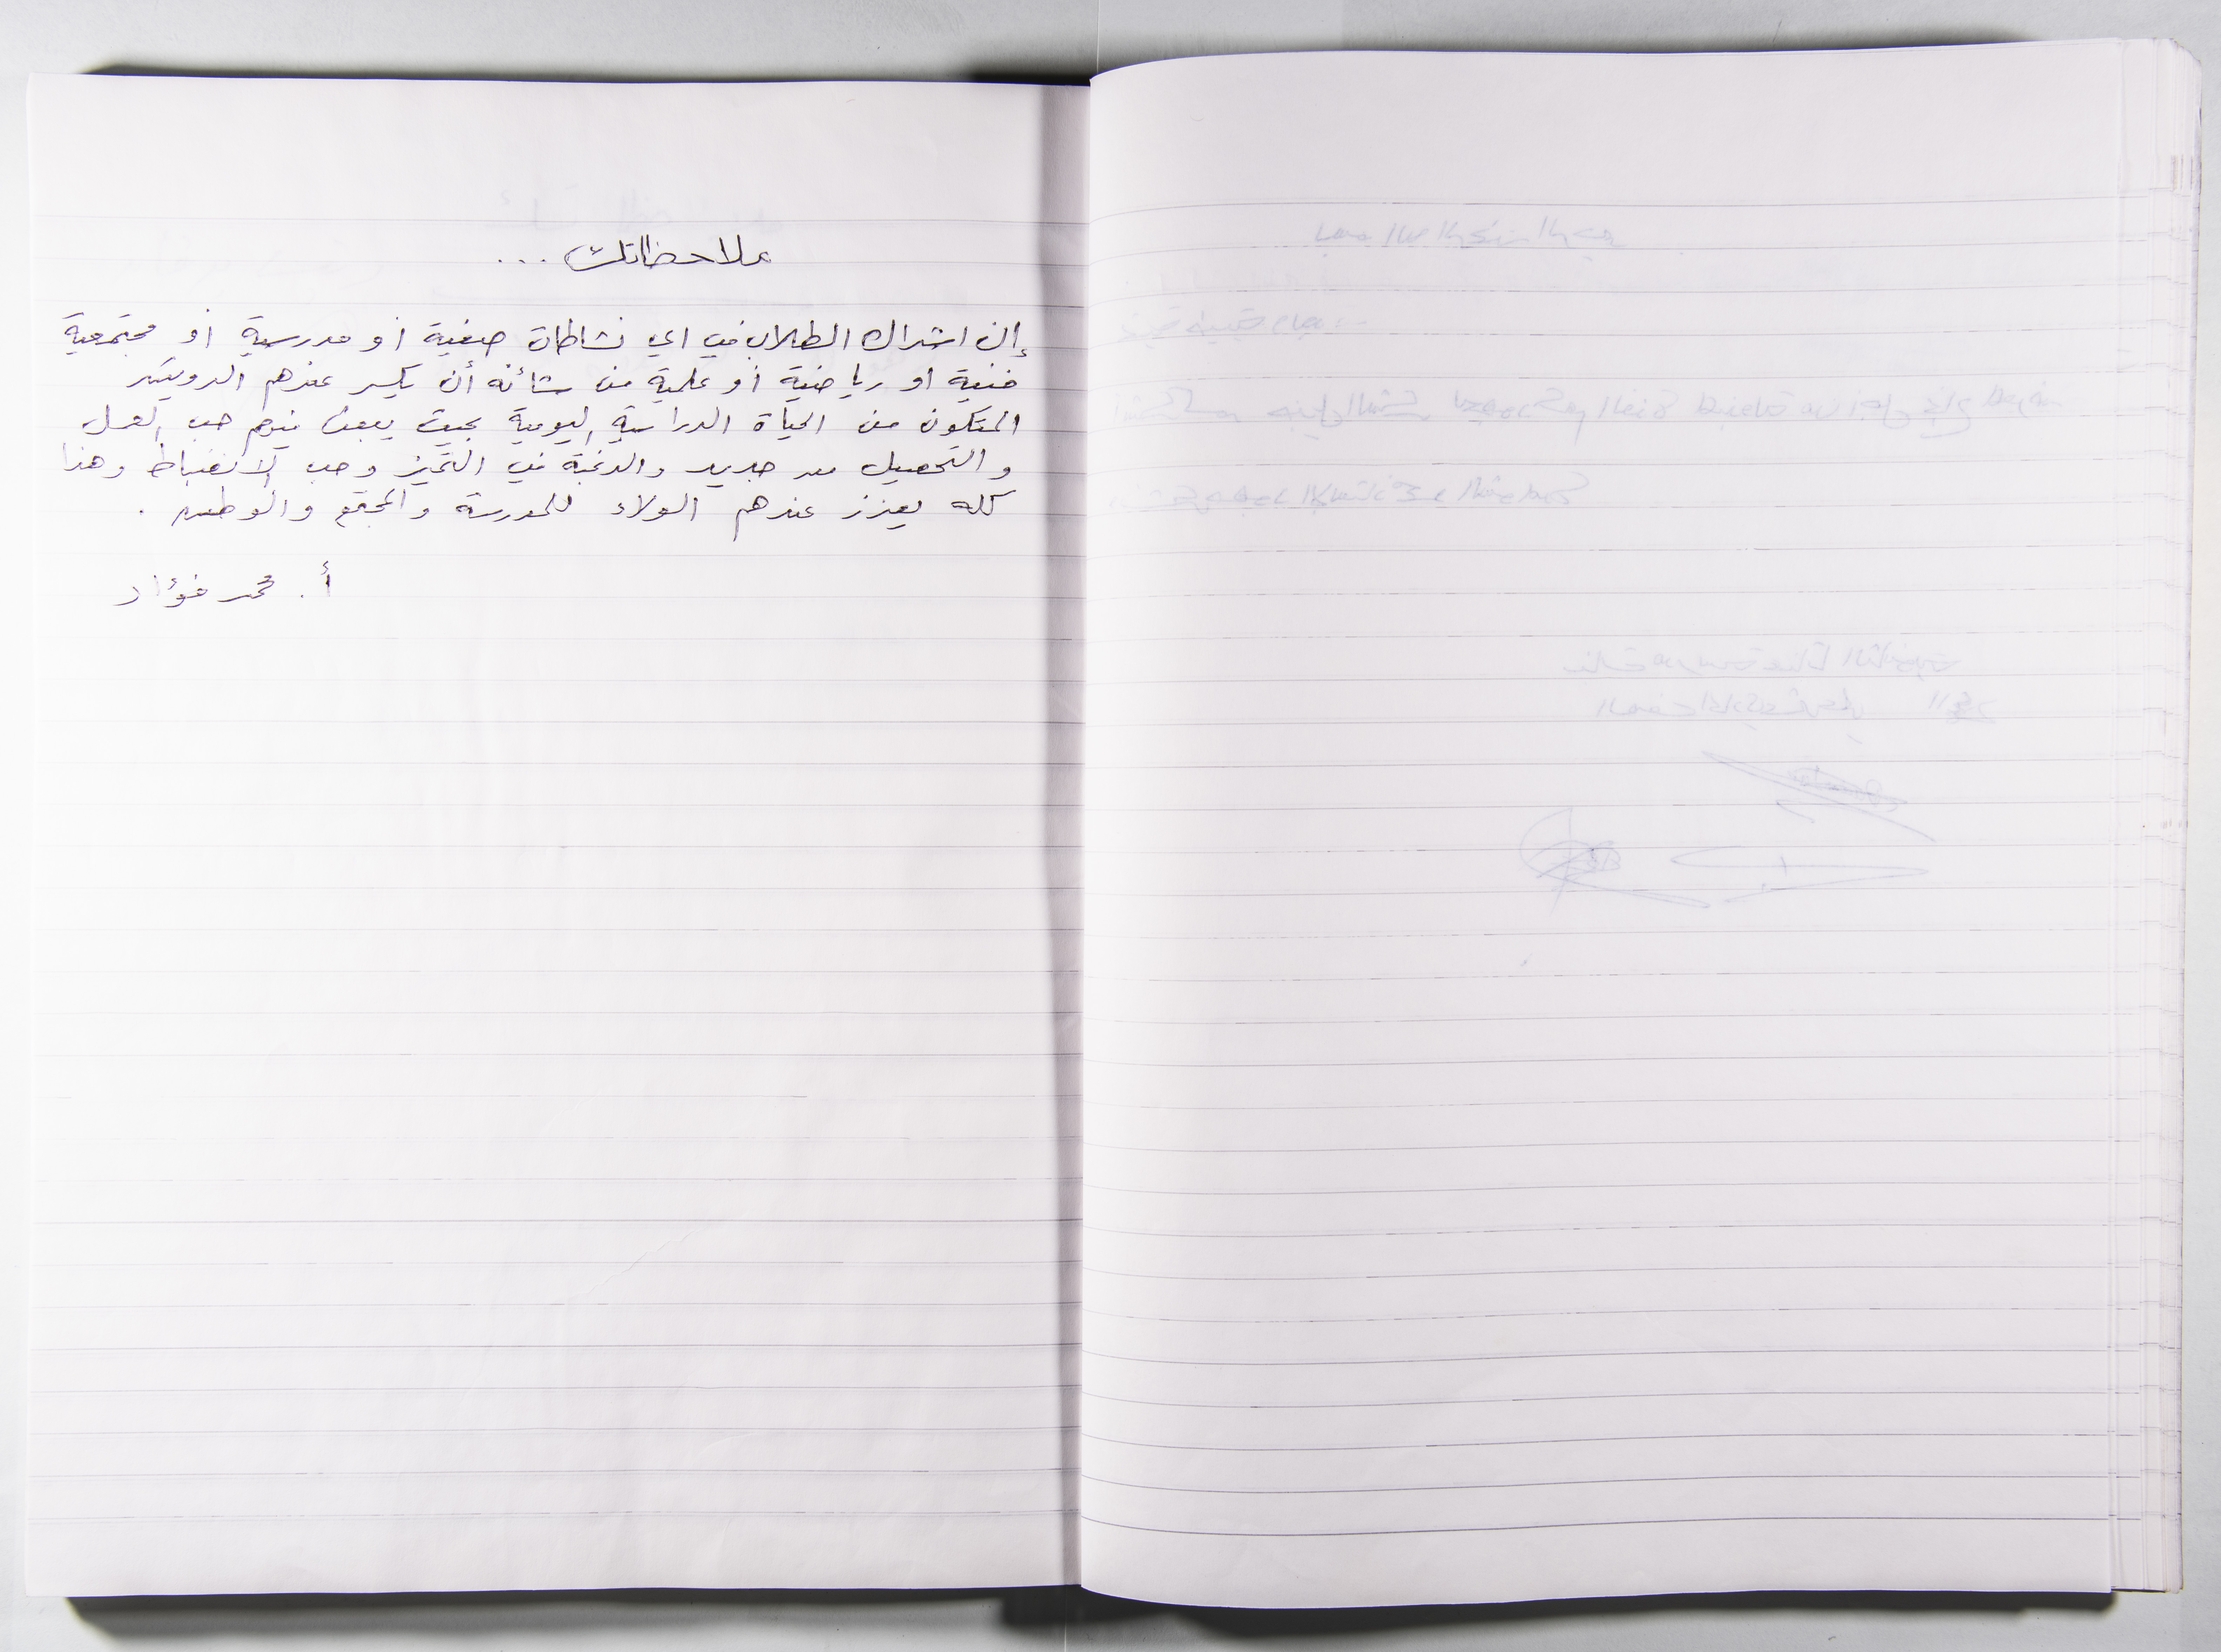 ملاحظاتك ...
إن اشتراك الطلاب في اي نشاطات صفية أو مدرسية أو مجتمعية
فنية او رياضية أو علمية من شأنه أن يكسر عندهم الروتين
المتكون من الحياة الدراسية اليومية بحيث يبعث فيهم حب العمل
والتحصيل من جديد والرغبة في التميز وحب الانضباط وهذا
كله يعزز عندهم الولاء للمدرسة والمجتمع والوطن .
أ. محمد فؤاد